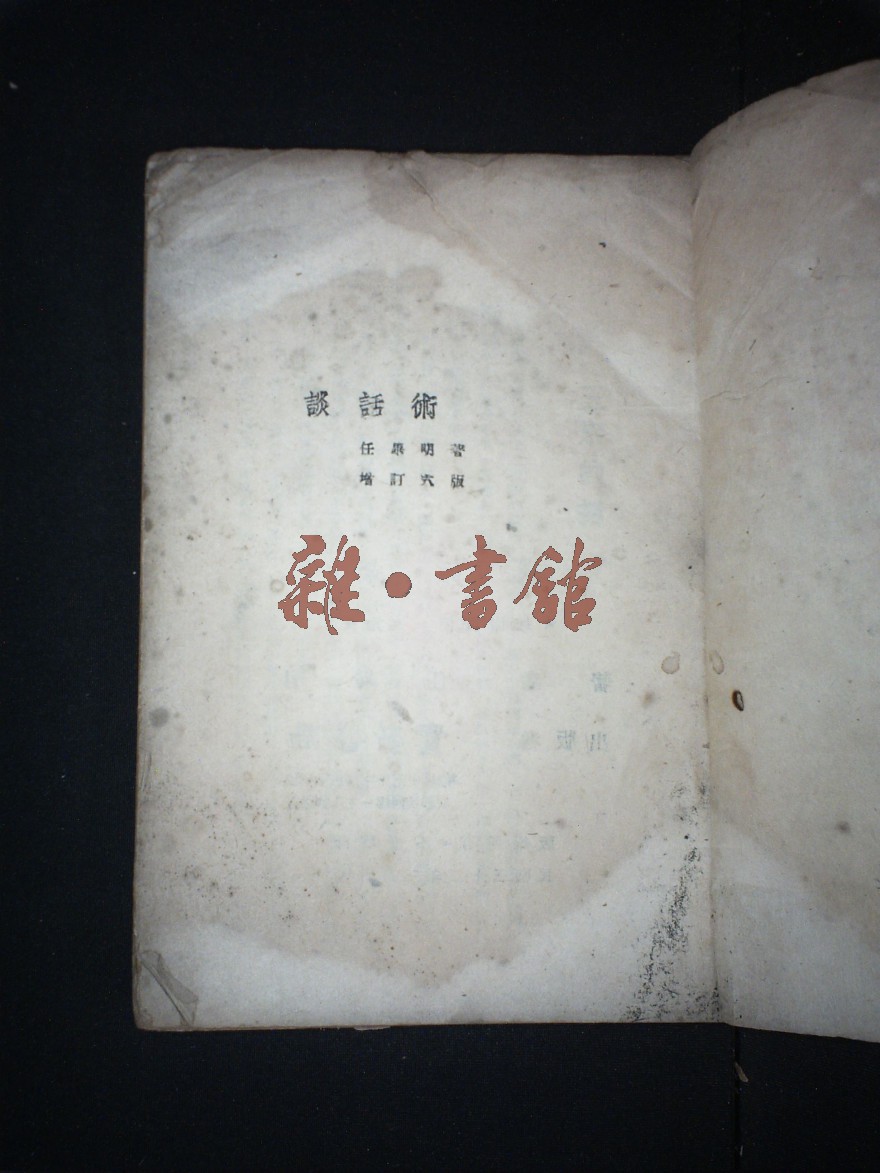 談話術
任畢明著
增訂六版
雜·書館